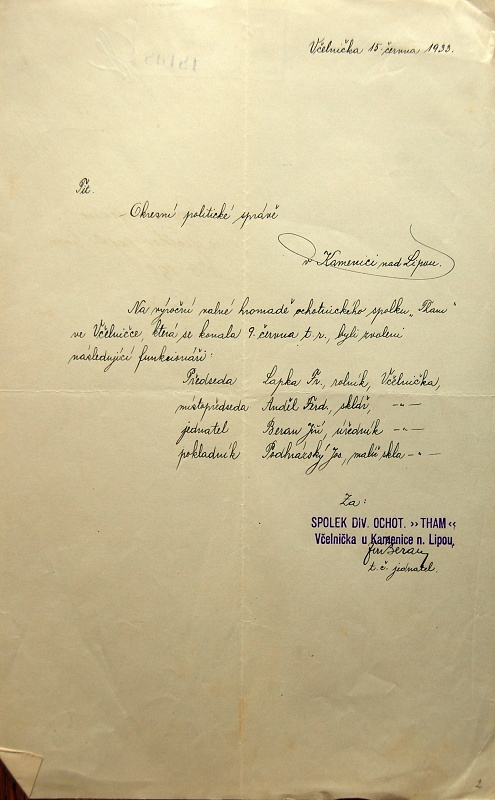 Včelnička 15. června 1933.
Tit.
Okresní politické správě
v Kamenici nad Lipou.
Na výroční valné hromadě ochotnického spolku „Tham"
ve Včelničce, která se konala 9. června t. r., byli zvoleni
následující funkcionáři:
Předseda Lapka Fr., rolník, Včelnička,
místopředseda Anděl Ferd., sklář, -„-
jednatel Beran Jiří, úředník -„-
pokladník Podhrázský Jos., malíř skla -„-
Za:
SPOLEK DIV. OCHOT. »THAM«
Včelnička u Kamenice n. Lipou,
Jiří Beran
t. č. jednatel.
2